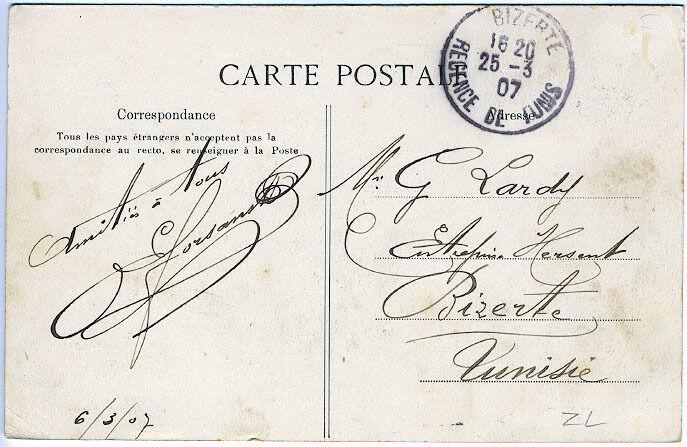 BIZERTE
16 20
25 - 3
07
REGENCE DE TUNIS
CARTE POSTALE
Correspondance
Adresse
Tous les pays étrangers n'acceptent pas la
correspondance au recto, se renseigner à la Poste
Amitiés à tous
6/3/07
Mr. G Lardy
Entreprise Hersent
Bizerte
Tunisie
ZL